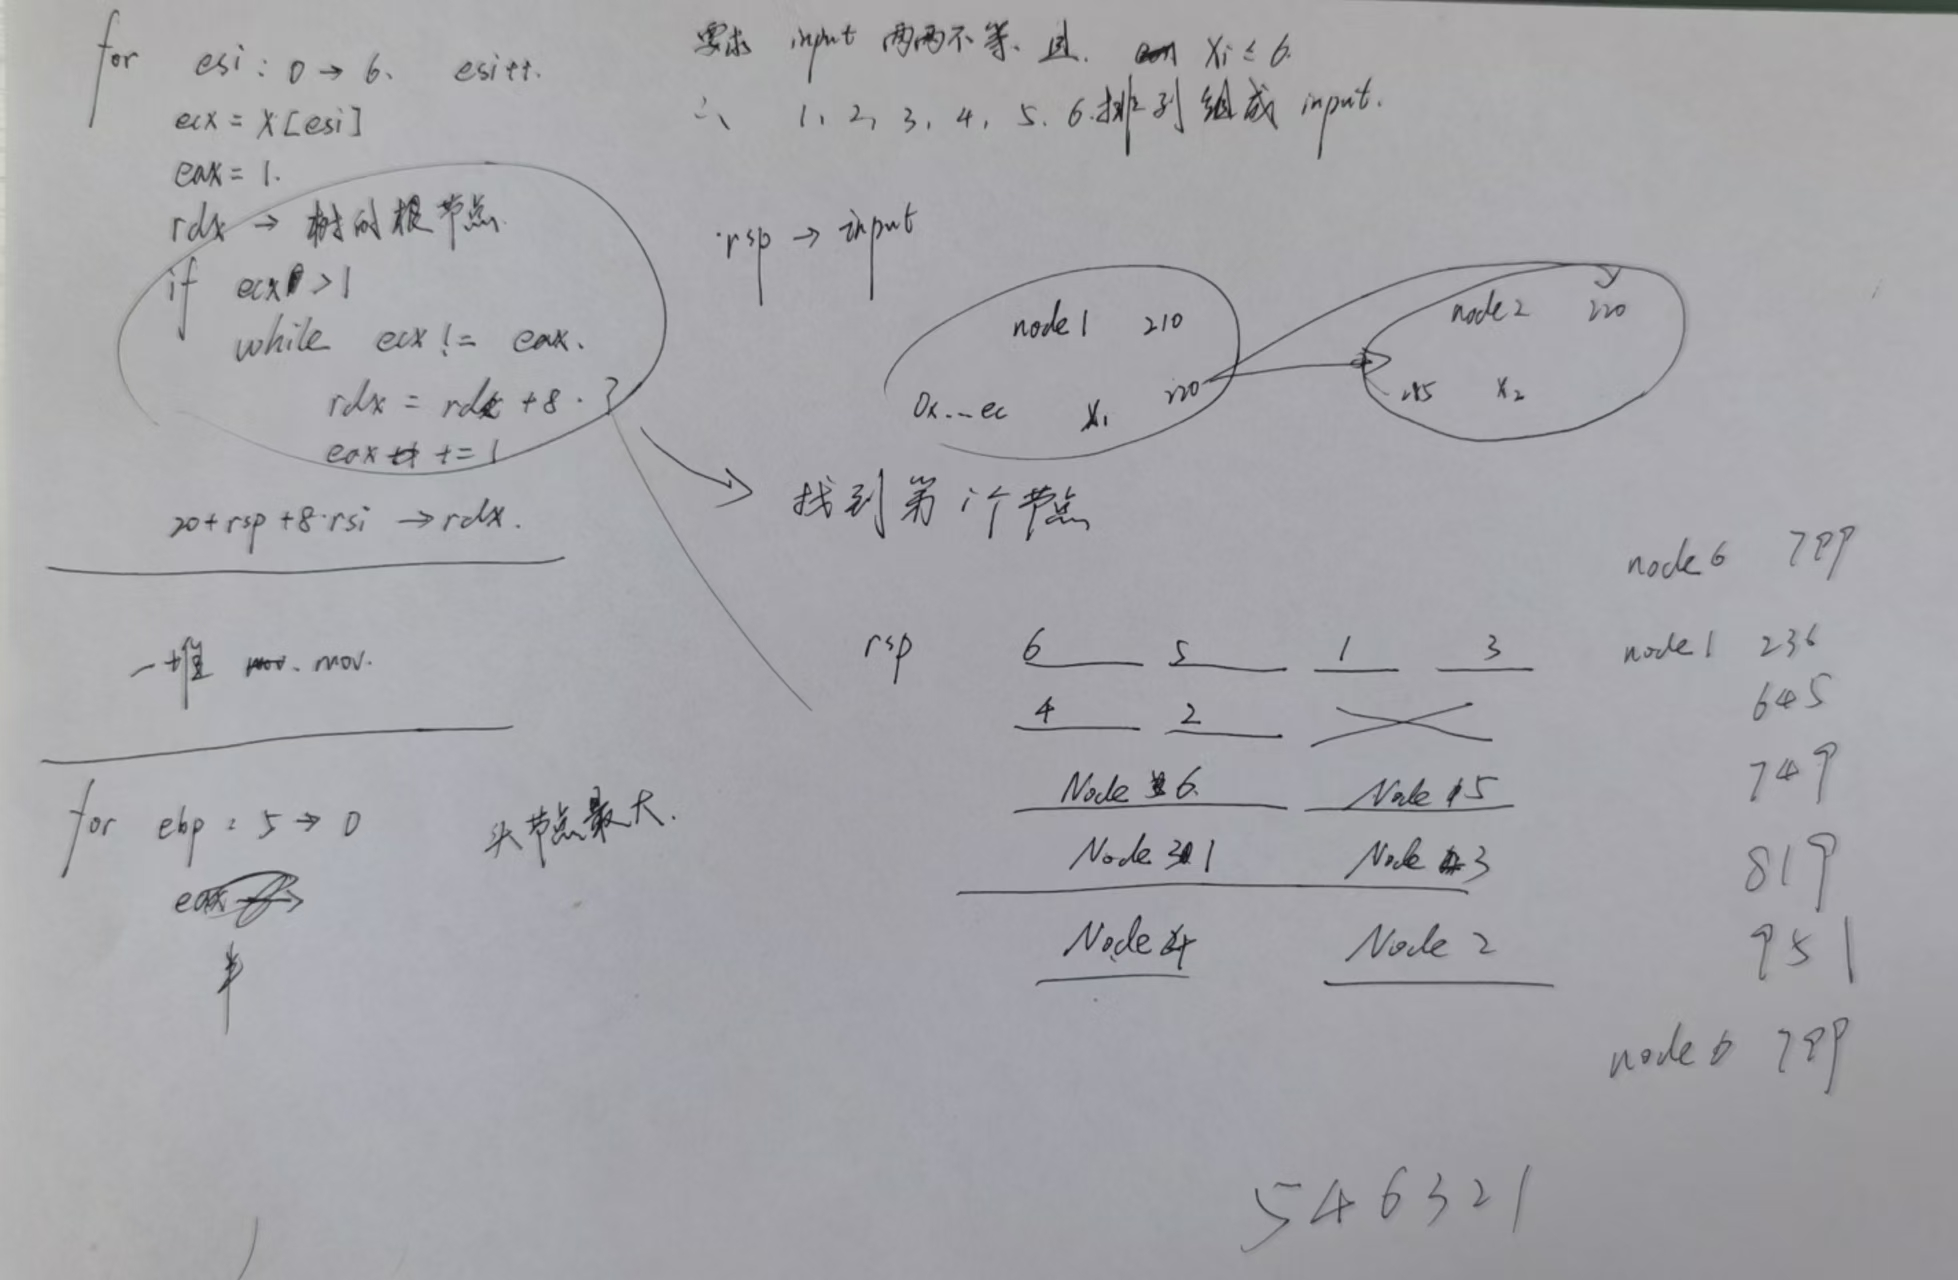 for esi : 0 → 6. esi++.
ecx = X[esi]
eax = 1.
rdx → 树的根节点.
if ecx > 1
while ecx != eax.
rdx = rdx + 8 . ?
eax += 1
20 + rsp + 8·rsi → rdx.
一堆 mov.
for ebp : 5 → 0 头节点最大.
要求 input 两两不等、且. Xi ≤ 6.
∴ 1, 2, 3, 4, 5, 6. 排列组成 input.
rsp → input
node 1 210
0x...ec X₁ 220
node 2 220
X₂
找到第 i 个节点
rsp 6 5 1 3
4 2
Node 6. Node 5
Node 1 Node 3
Node 4 Node 2
node 6 799
node 1 236
645
749
819
951
node 6 799
546321